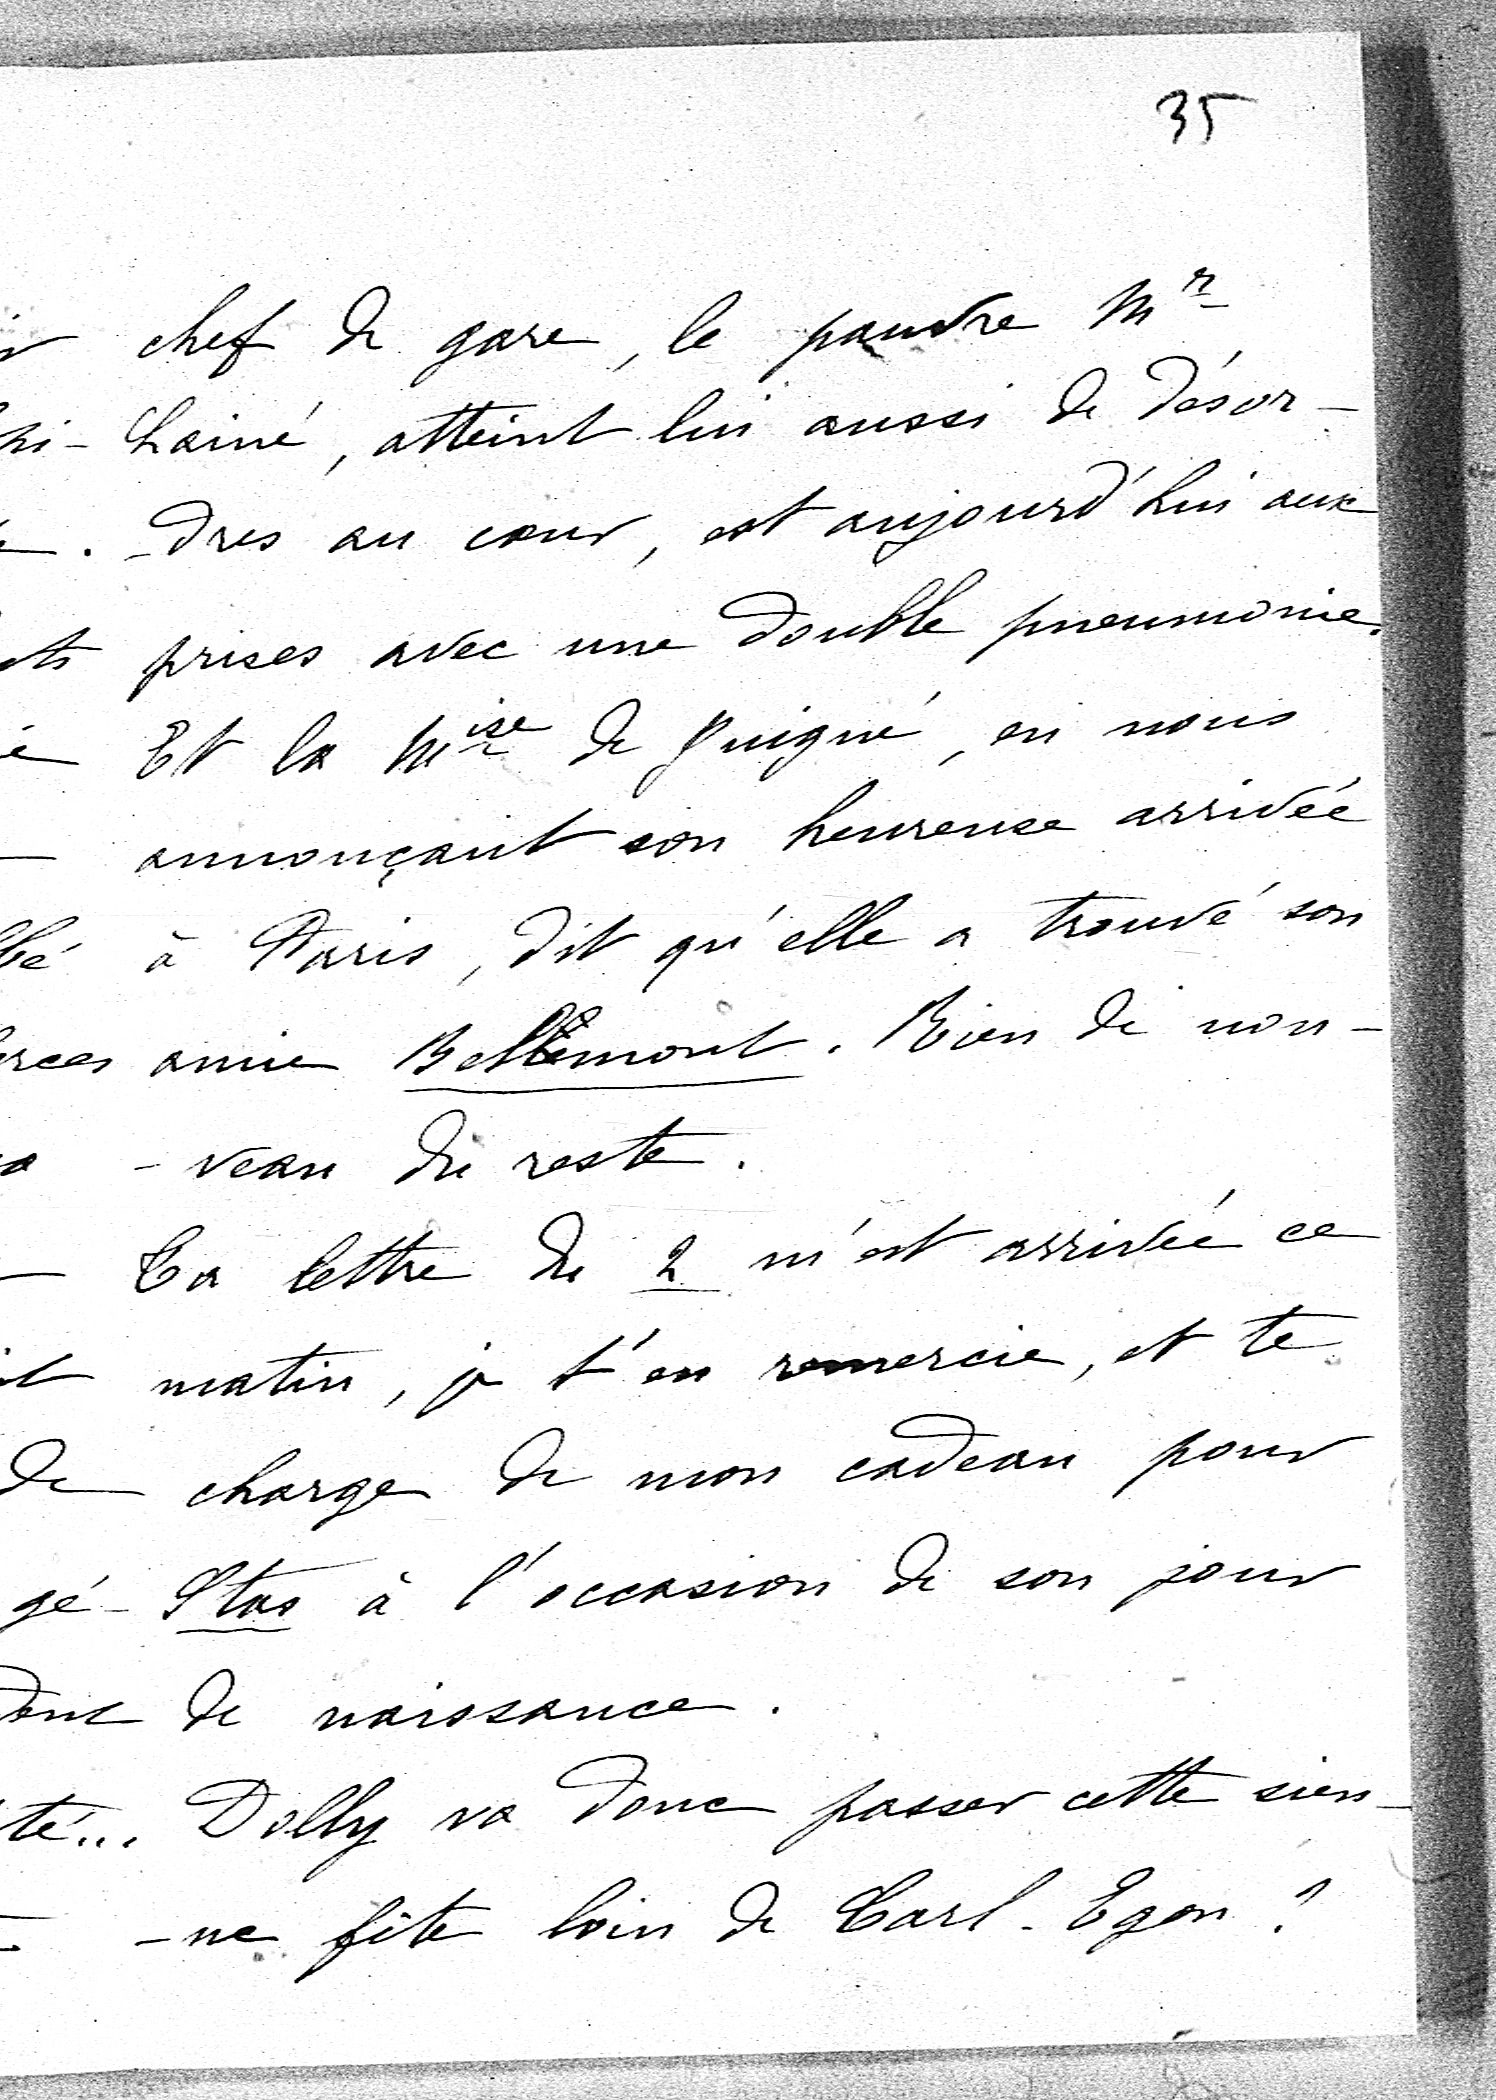 35
chef de gare, le pauvre Mr
Lainé, atteint lui aussi de désor-
-dres au cœur, est aujourd'hui aux
prises avec une double pneumonie.
Et la Mise de Puigné, en nous
annonçant son heureuse arrivée
à Paris, dit qu'elle a trouvé son
amie Bellemont. Rien de nou-
-veau du reste.
Ta lettre du 2 m'est arrivée ce
matin, je t'en remercie, et te
charge de mon cadeau pour
Stas à l'occasion de son jour
de naissance.
Dolly va donc passer cette sien-
-ne fête loin de Carl-Egon?